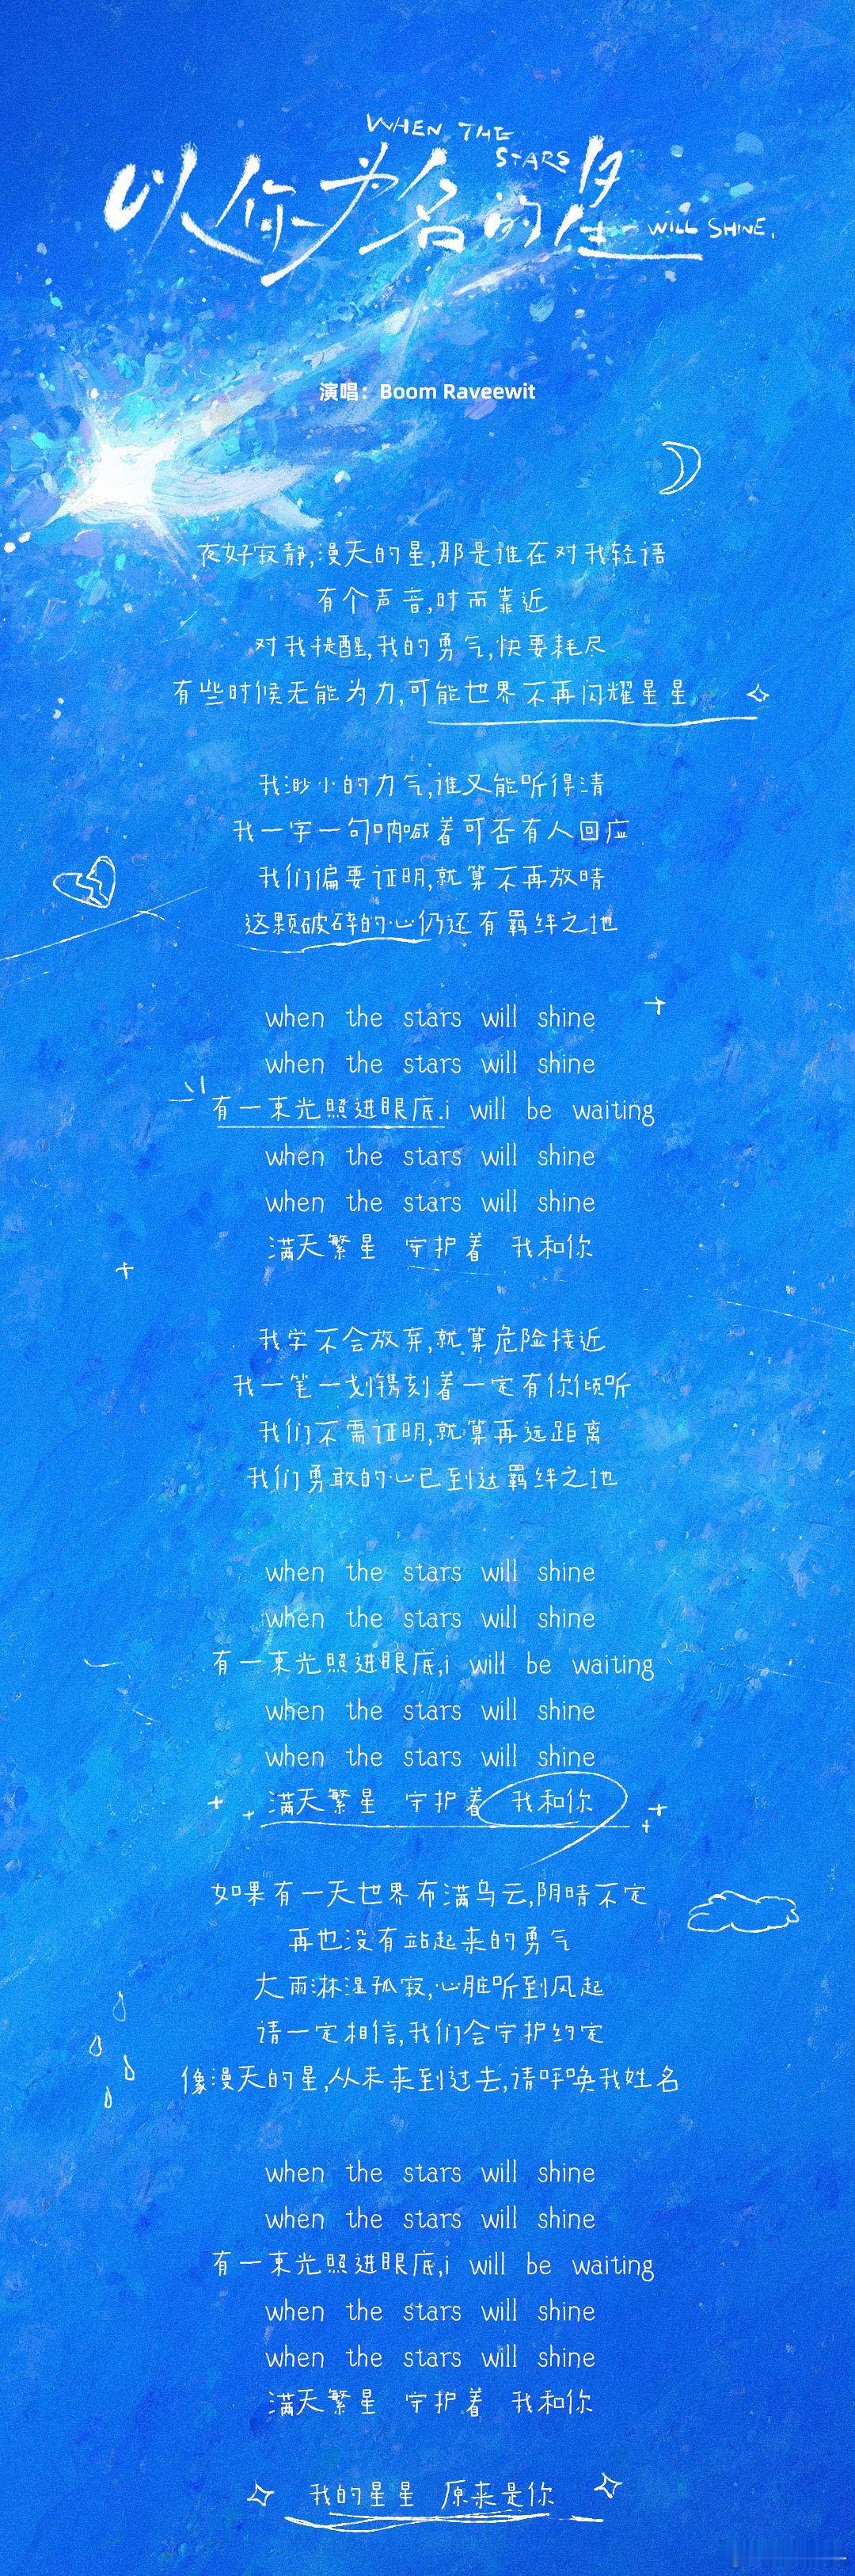 WHEN THE STARS
以你为名的星 WILL SHINE.
演唱：Boom Raveewit
夜好寂静,漫天的星,那是谁在对我轻语
有个声音,时而靠近
对我提醒,我的勇气,快要耗尽
有些时候无能为力,可能世界不再闪耀星星
我渺小的力气,谁又能听得清
我一字一句呐喊着可否有人回应
我们偏要证明,就算不再放晴
这颗破碎的心仍还有羁绊之地
when the stars will shine
when the stars will shine
有一束光照进眼底.i will be waiting
when the stars will shine
when the stars will shine
满天繁星 守护着 我和你
我学不会放弃,就算危险接近
我一笔一划镌刻着一定有你倾听
我们不需证明,就算再远距离
我们勇敢的心已到达羁绊之地
when the stars will shine
when the stars will shine
有一束光照进眼底,i will be waiting
when the stars will shine
when the stars will shine
满天繁星 守护着 我和你
如果有一天世界布满乌云,阴晴不定
再也没有站起来的勇气
大雨淋湿孤寂,心脏听到风起
请一定相信,我们会守护约定
像漫天的星,从未来到过去,请呼唤我姓名
when the stars will shine
when the stars will shine
有一束光照进眼底,i will be waiting
when the stars will shine
when the stars will shine
满天繁星 守护着 我和你
我的星星 原来是你